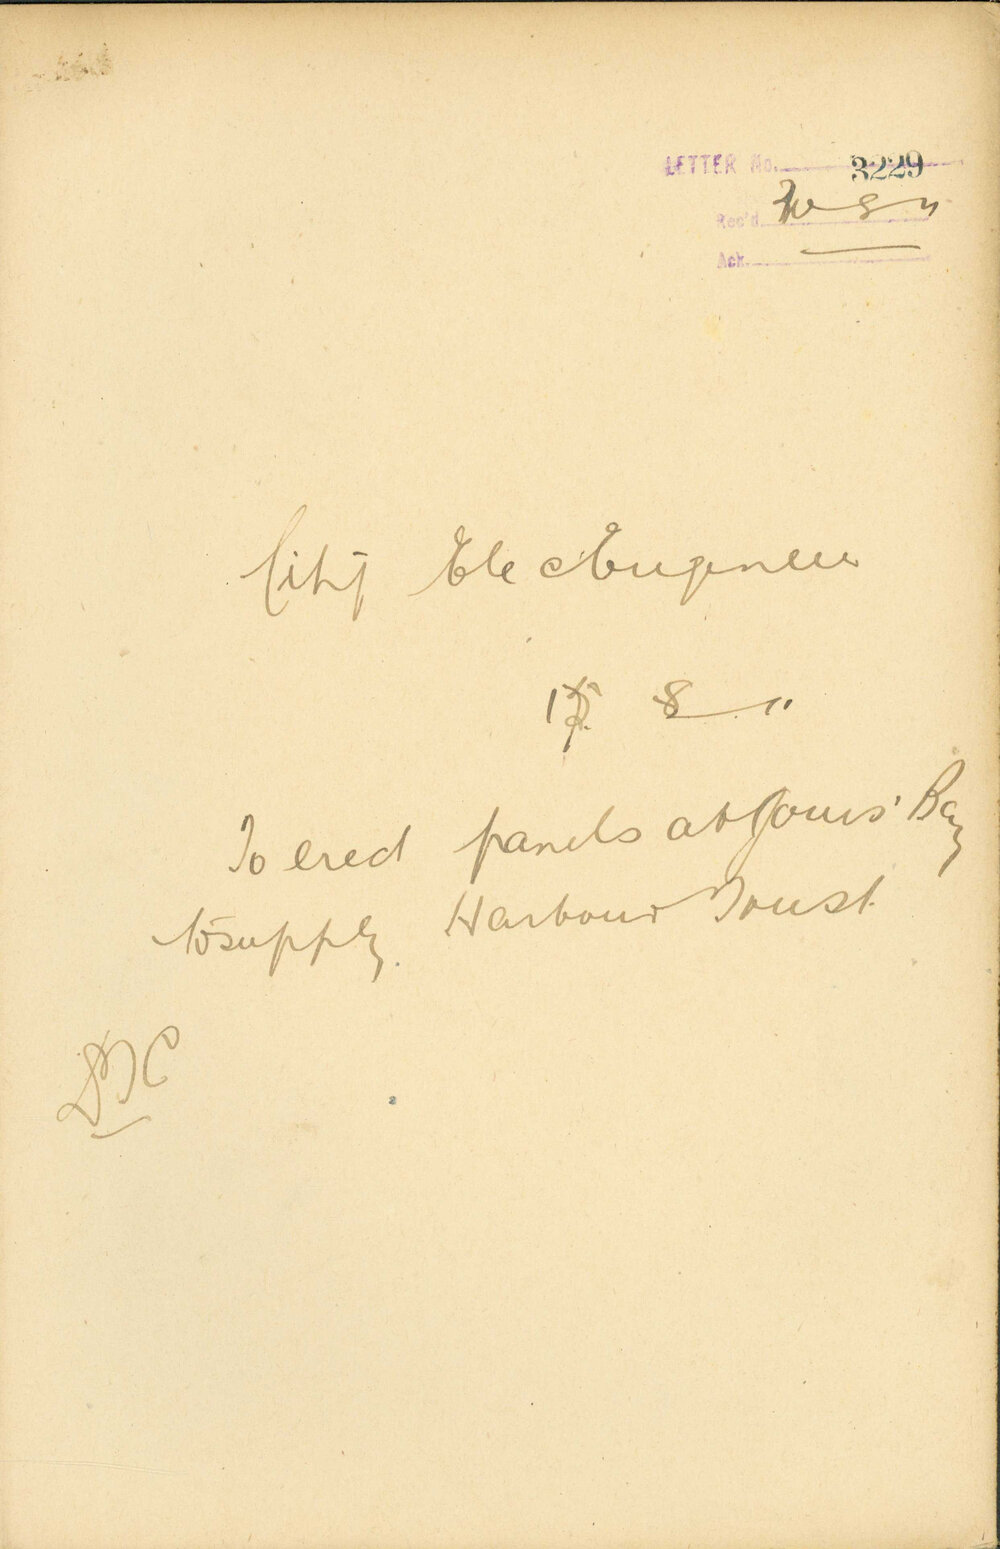 LETTER No. 3229
Rec'd 8 11
Ack.
City Elec Engineer
8 11
To erect panels at Jones' Bay
to supply Harbour Trust